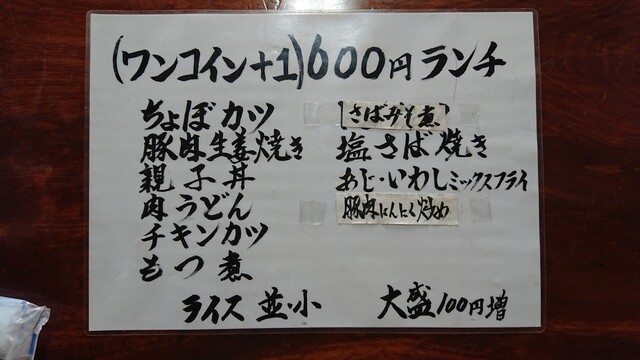 (ワンコイン+1)600円ランチ
ちょぼカツ
豚肉生姜焼き
親子丼
肉うどん
チキンカツ
もつ煮
[さばみそ煮]
塩さば焼き
あじ・いわしミックスフライ
豚肉にんにく炒め
ライス 並・小 大盛100円増